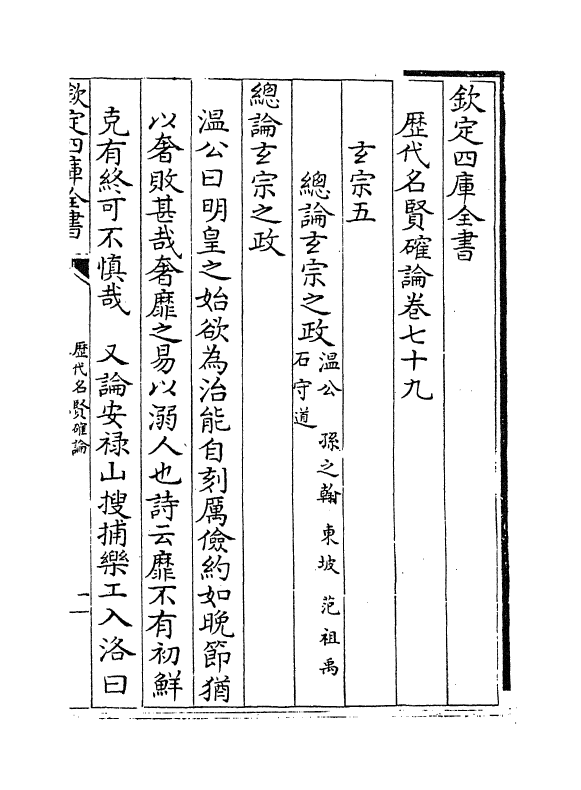 欽定四庫全書
歴代名賢確論卷七十九
玄宗五
總論玄宗之政溫公 孫之翰 東坡 范祖禹
石守道
總論玄宗之政
溫公曰明皇之始欲為治能自刻厲儉約如晚節猶
以奢敗甚哉奢靡之易以溺人也詩云靡不有初鮮
克有終可不慎哉 又論安禄山搜捕樂工入洛曰
欽定四庫全書
歴代名賢確論
一